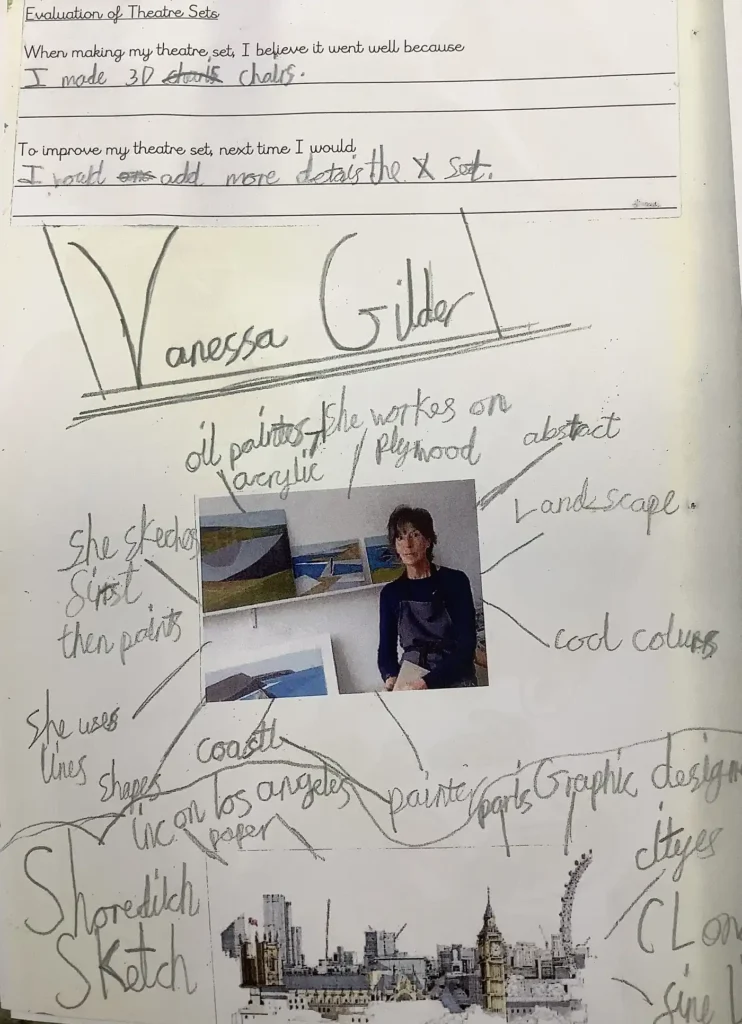 Evaluation of Theatre Sets
When making my theatre set, I believe it went well because
I made 3D chairs.
To improve my theatre set, next time I would
I would add more detais the X set.
Vanessa Gilder
oil painter/acrylic
she workes on plywood
abstract
Landscape.
she skeches first then paints
cool colurs
she uses lines
shapes
coastl
painter
inc on paper
los angeles
paris
Graphic design
cityes
Shoreditch Sketch
CLon
fine l